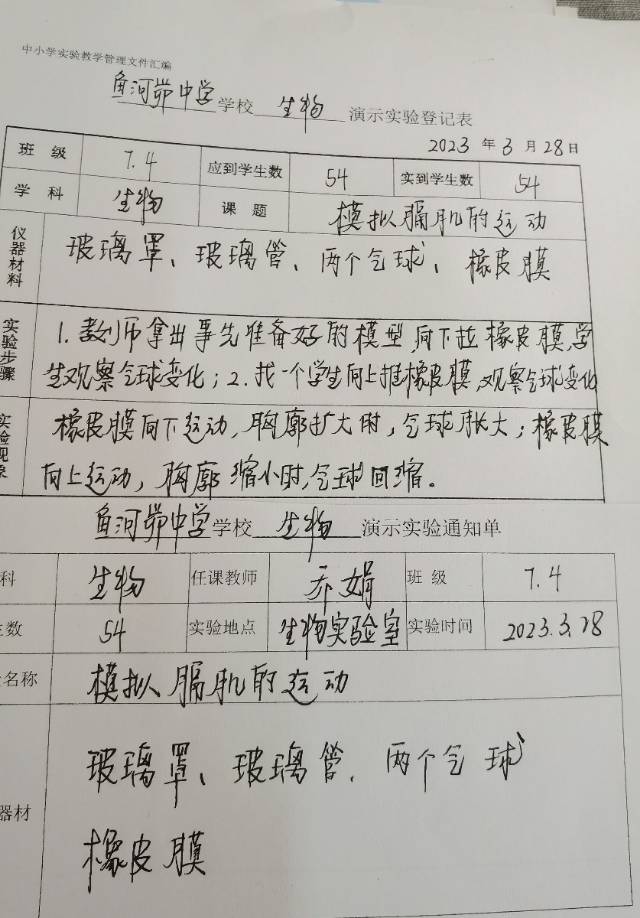 中小学实验教学管理文件汇编
鱼河峁中学学校 生物 演示实验登记表
2023 年 3 月 28 日
班 级 7.4 应到学生数 54 实到学生数 54
学 科 生物 课 题 模拟膈肌的运动
仪器材料 玻璃罩、玻璃管、两个气球、橡皮膜
实验步骤 1. 教师拿出事先准备好的模型,向下拉橡皮膜,学
生观察气球变化;2. 找一个学生向上推橡皮膜,观察气球变化
实验现象 橡皮膜向下运动,胸廓扩大时,气球胀大;橡皮膜
向上运动,胸廓缩小时,气球回缩。
鱼河峁中学学校 生物 演示实验通知单
科 生物 任课教师 乔娟 班 级 7.4
生数 54 实验地点 生物实验室 实验时间 2023.3.28
名称 模拟膈肌的运动
器材 玻璃罩、玻璃管、两个气球
橡皮膜